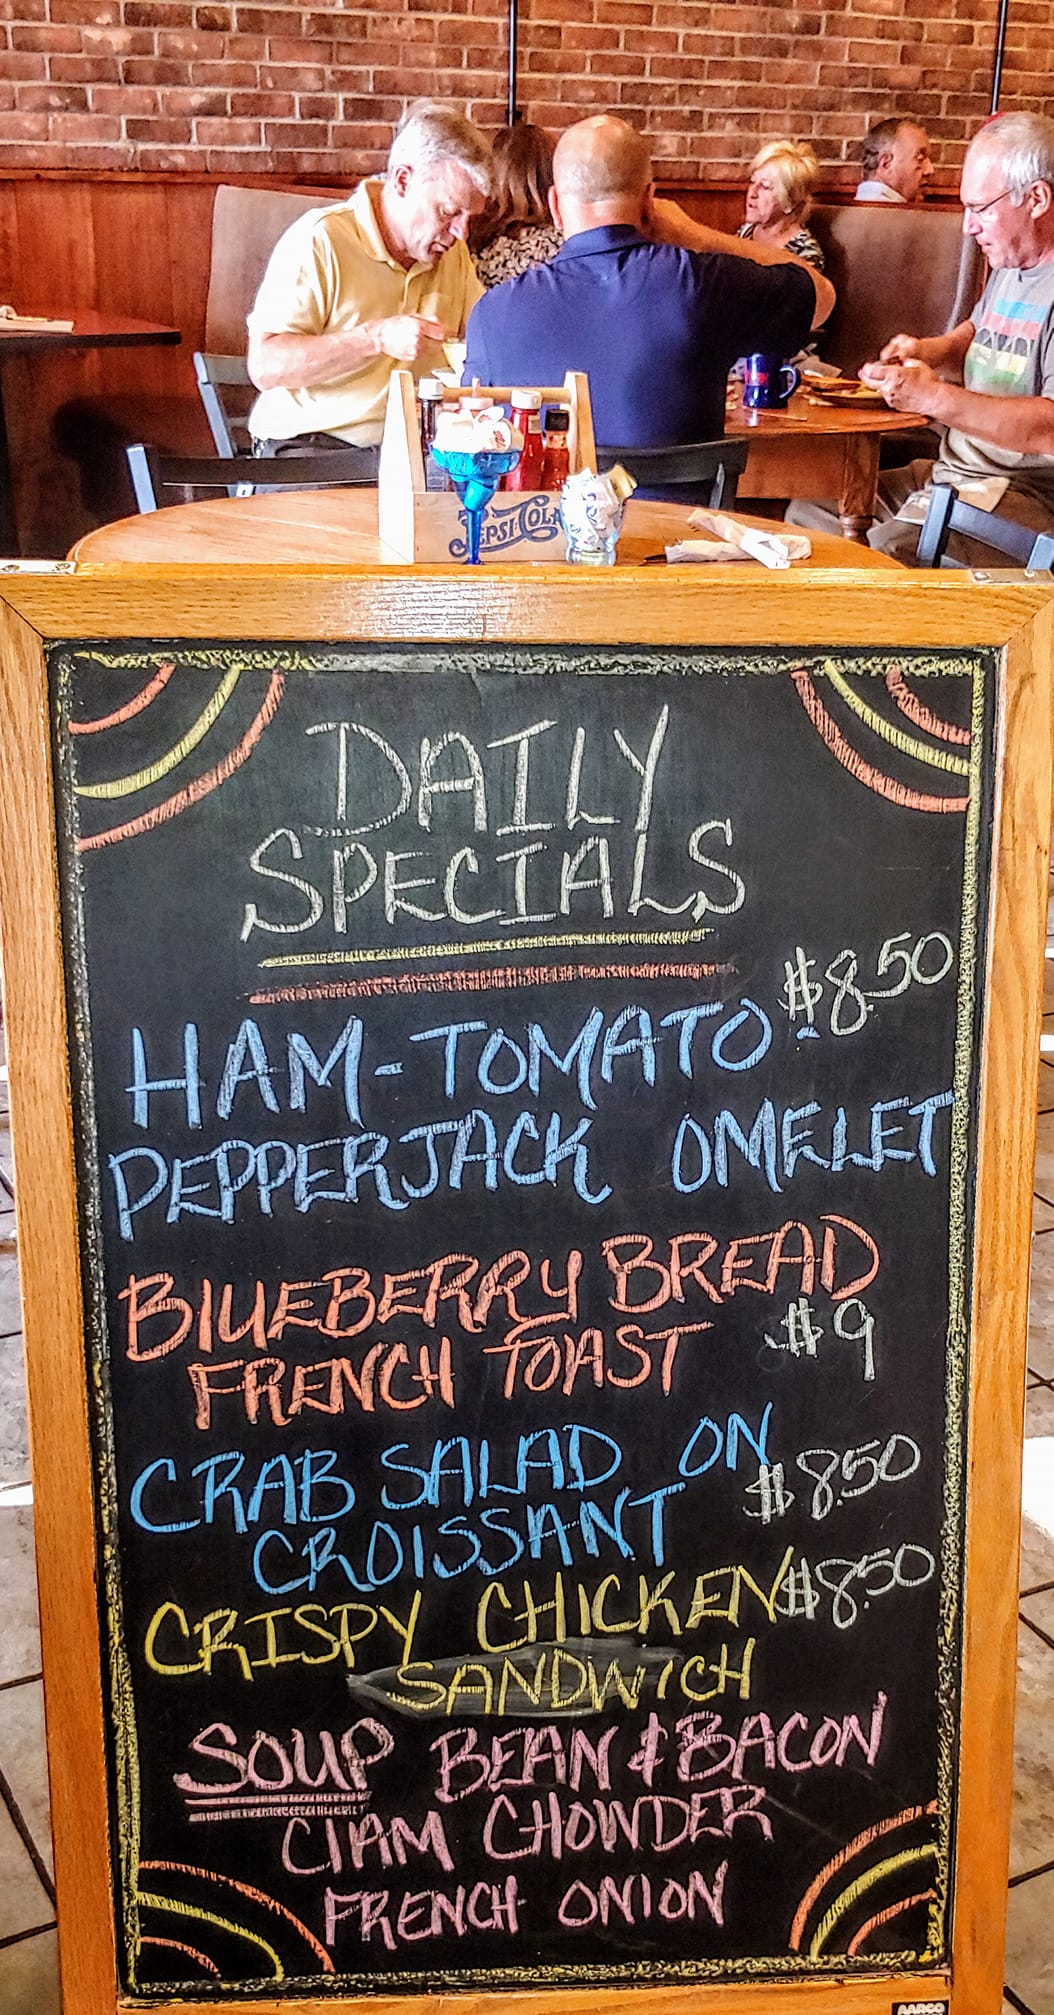 PEPSI:COLA
DAILY
SPECIALS
$8.50
HAM-TOMATO
PEPPERJACK OMELET
BLUEBERRY BREAD
FRENCH TOAST $9
CRAB SALAD ON
CROISSANT $8.50
CRISPY CHICKEN $8.50
SANDWICH
SOUP BEAN & BACON
CLAM CHOWDER
FRENCH ONION
AARCO